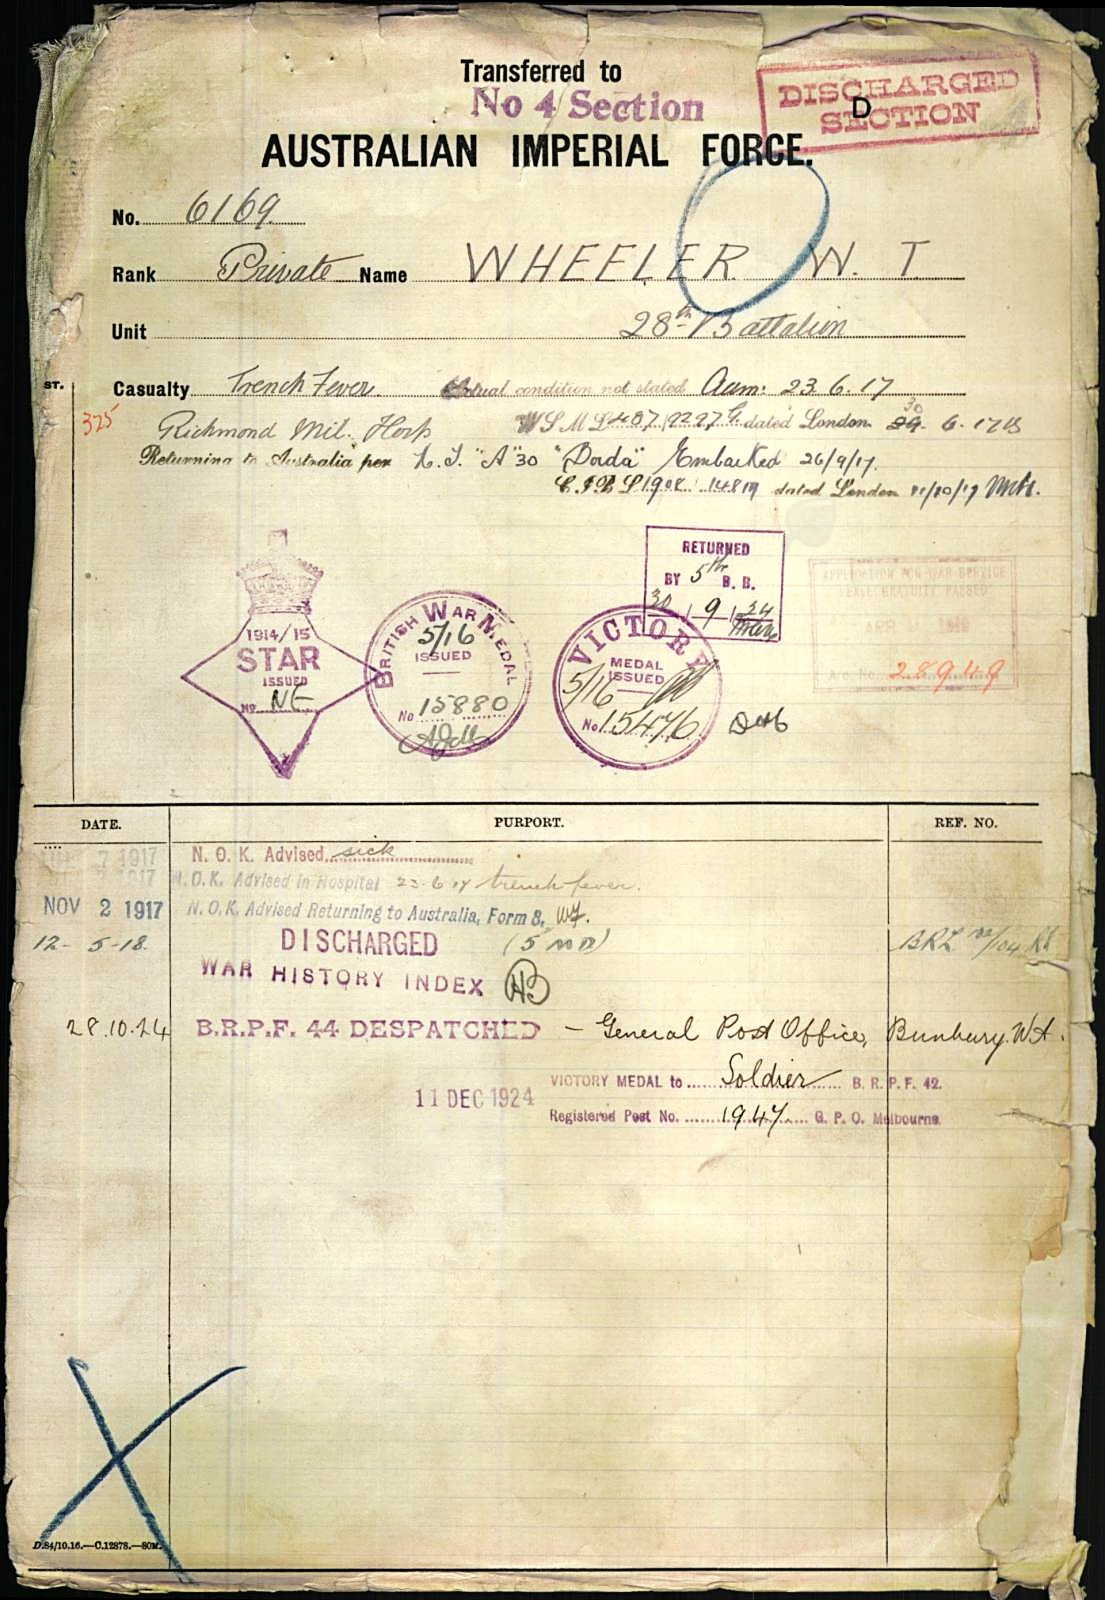 Transferred to
No 4 Section
DISCHARGED
SECTION
D
AUSTRALIAN IMPERIAL FORCE.
No. 6169
Rank Private Name WHEELER W. T
Unit 28th Battalion
ST.
Casualty Trench Fever. Actual condition not stated Adm: 23.6.17
325
Richmond Mil. Hosp dated London 30. 6. 17
Returning to Australia per H. T. "A" 30 "Borda" Embarked 26/9/17.
dated London 11/10/17
RETURNED
BY 5th B. B.
30 / 9 / 24
APPLICATION FOR WAR SERVICE
GRATUITY PASSED
28949
1914/15
STAR
ISSUED
No. NE
BRITISH WAR MEDAL
5/16
ISSUED
No 15880
VICTORY
MEDAL
ISSUED
5/16
No 15476
DATE. PURPORT. REF. NO.
7 1917 N. O. K. Advised sick
1917 N.O.K. Advised in Hospital 23-6-17 trench fever.
NOV 2 1917 N.O.K. Advised Returning to Australia, Form 8,
12-5-18. DISCHARGED (5 MD) BRL
WAR HISTORY INDEX
28.10.24 B.R.P.F. 44 DESPATCHED - General Post Office, Bunbury. WA.
VICTORY MEDAL to Soldier B. R. P. F. 42.
11 DEC 1924
Registered Post No. 1947 G. P. O. Melbourne.
D.84/10.16.—C.12878.—80M.